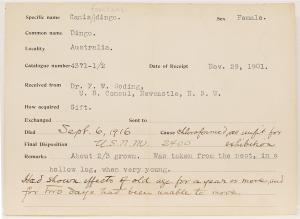 Specific name Canis dingo. Sex Female.
Common name Dingo.
Locality Australia.
Catalogue number 4371-1/2 Date of Receipt Nov. 29, 1901.
Received from Dr. F. W. Goding,
U. S. Consul, Newcastle, N. S. W.
How acquired Gift.
Exchanged Sent to
Died Sept. 6, 1916 Cause Chloroformed, as unfit for
Final Disposition U.S.N.M. 2400 exhibition
Remarks About 2/3 grown. Was taken from the nest, in a
hollow log, when very young.
Had shown effects of old age for a year or more, and
for two days had been unable to move.